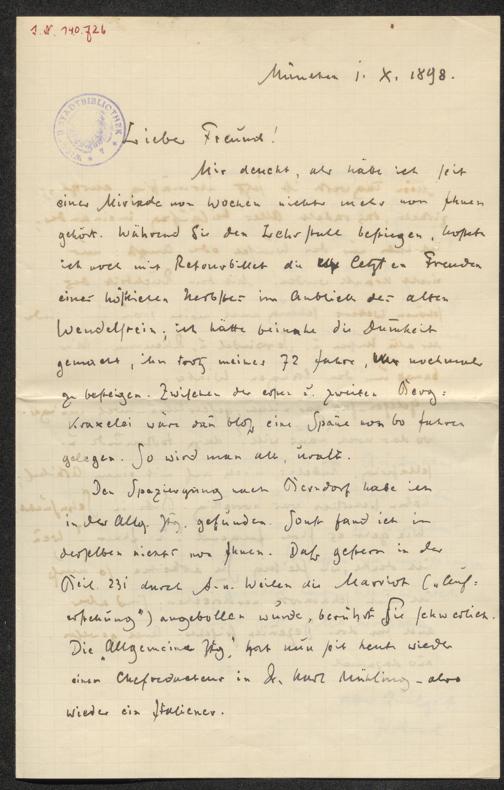 I.N. 140.726
München 1. X. 1898.
WIENER STADTBIBLIOTHEK
Lieber Freund!
Mir deucht, als habe ich seit
einer Miriade von Wochen nichts mehr von Ihnen
gehört. Während Sie den Lehrstuhl bestiegen,
ich noch mit Retourbillet die letzten Freuden
eines köstlichen Herbstes im Anblick des alten
Wendelstein; ich hätte beinahe die Dummheit
gemacht, ihn trotz meiner 72 Jahre, nochmals
zu besteigen. Zwischen der ersten u. zweiten Berg=
Kraxelei wäre dann bloß eine Späne von 60 Jahren
gelegen. So wird man alt, uralt.
Den Spaziergang nach Berndorf habe ich
in der Allg. Ztg. gefunden. Sonst fand ich in
derselben nichts von Ihnen. Daß gestern in der
Beil. 231 durch A. v. Weilen die Marriot („Auf=
erstehung") angebollen wurde, berührt Sie schwerlich.
Die „Allgemeine Ztg." hat nun seit heute wieder
einen Chefredacteur in Dr. Karl Mühling – also
wieder ein Italiener.